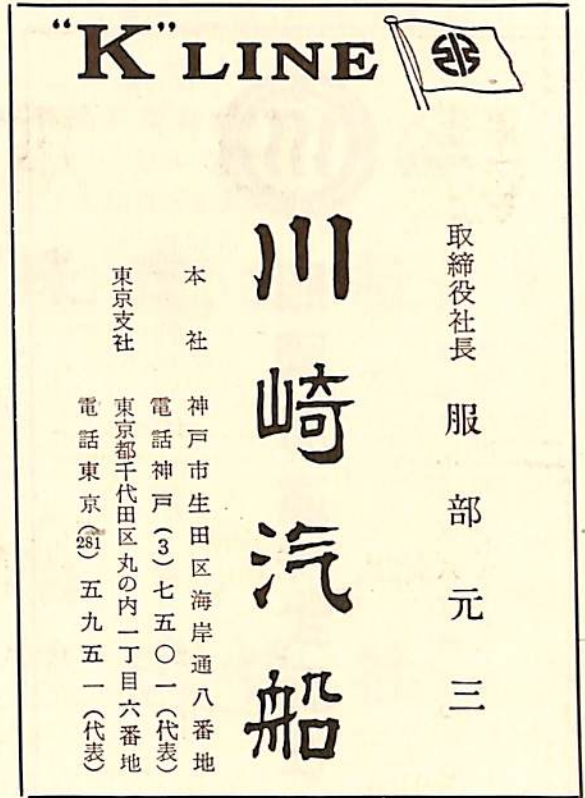 “K” LINE
取締役社長 服部元三
川崎汽船
本社 神戸市生田区海岸通八番地
電話神戸(3)七五〇一(代表)
東京支社 東京都千代田区丸の内一丁目六番地
電話東京(281)五九五一(代表)